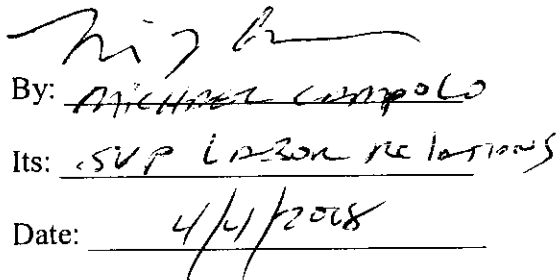 By: MICHAEL CAMPOLO
Its: SVP LABOR RELATIONS
Date: 4/4/2018